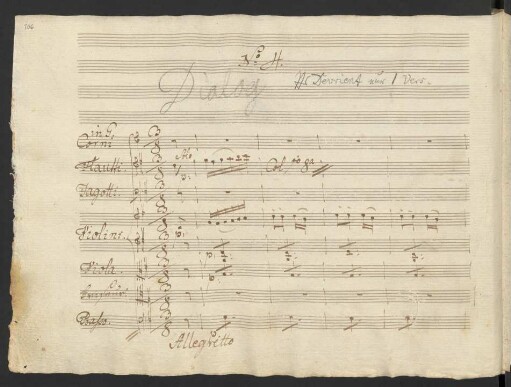 No 4.
Dialog
H Devrient nur 1 Vers.
in G
Corni
Flauti
Fagotti.
Violini.
Viola.
Basso.
Allegretto